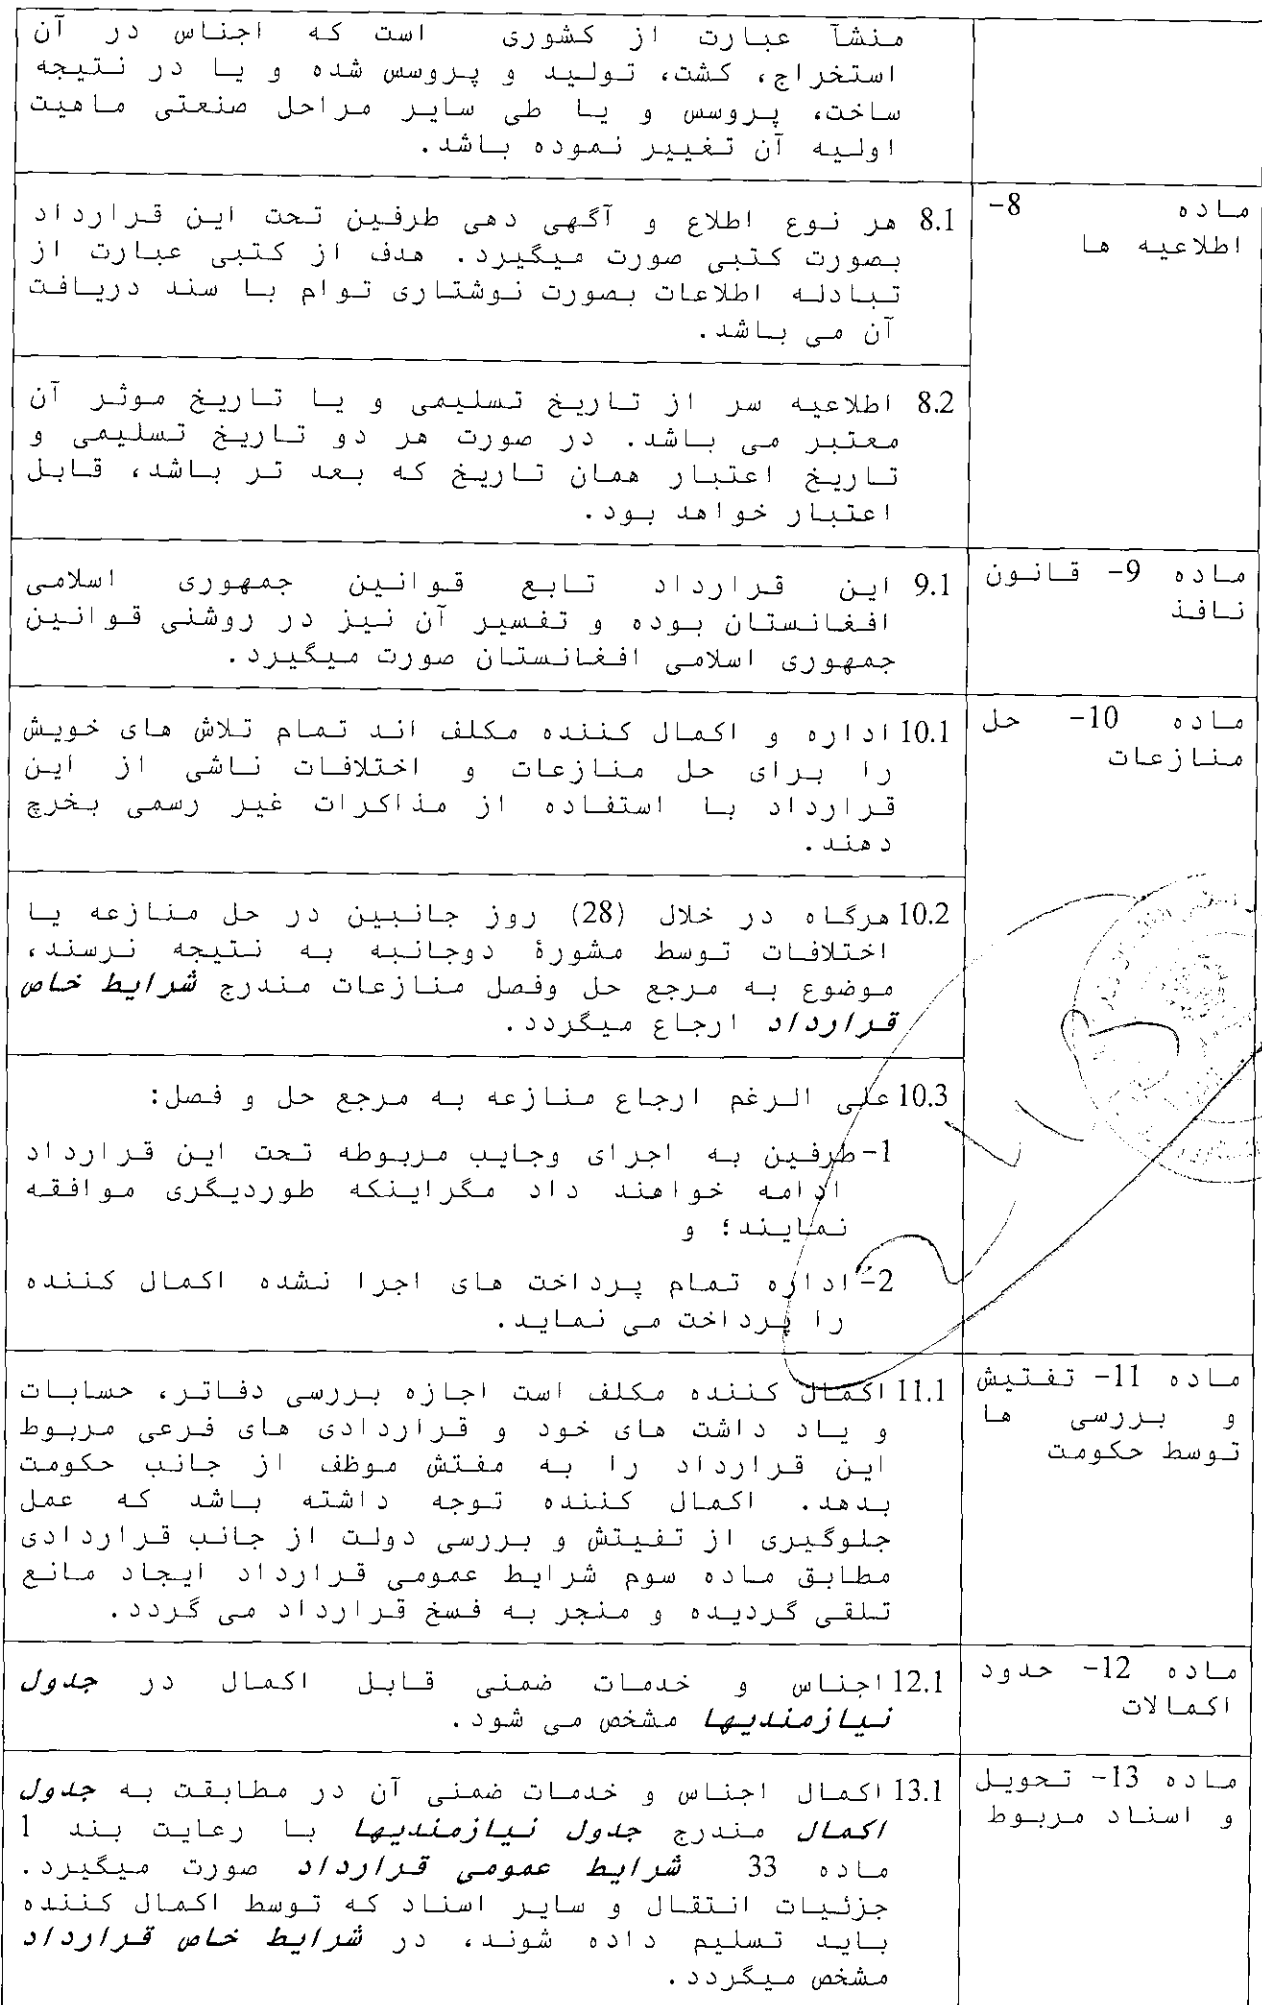 منشآ عبارت از کشوری است که اجناس در آن
استخراج، کشت، تولید و پروسس شده و یا در نتیجه
ساخت، پروسس و یا طی سایر مراحل صنعتی ماهیت
اولیه آن تغییر نموده باشد.
ماده 8-
اطلاعیه ها
8.1 هر نوع اطلاع و آگهی دهی طرفین تحت این قرارداد
بصورت کتبی صورت میگیرد. هدف از کتبی عبارت از
تبادله اطلاعات بصورت نوشتاری توام با سند دریافت
آن می باشد.
8.2 اطلاعیه سر از تاریخ تسلیمی و یا تاریخ موثر آن
معتبر می باشد. در صورت هر دو تاریخ تسلیمی و
تاریخ اعتبار همان تاریخ که بعد تر باشد، قابل
اعتبار خواهد بود.
ماده 9- قانون
نافذ
9.1 این قرارداد تابع قوانین جمهوری اسلامی
افغانستان بوده و تفسیر آن نیز در روشنی قوانین
جمهوری اسلامی افغانستان صورت میگیرد.
ماده 10- حل
منازعات
10.1 اداره و اکمال کننده مکلف اند تمام تلاش های خویش
را برای حل منازعات و اختلافات ناشی از این
قرارداد با استفاده از مذاکرات غیر رسمی بخرچ
دهند.
10.2 هرگاه در خلال (28) روز جانبین در حل منازعه یا
اختلافات توسط مشورۀ دوجانبه به نتیجه نرسند،
موضوع به مرجع حل وفصل منازعات مندرج شرایط خاص
قرارداد ارجاع میگردد.
10.3 علی الرغم ارجاع منازعه به مرجع حل و فصل:
1- طرفین به اجرای وجایب مربوطه تحت این قرارداد
ادامه خواهند داد مگراینکه طوردیگری موافقه
نمایند؛ و
2- اداره تمام پرداخت های اجرا نشده اکمال کننده
را پرداخت می نماید.
ماده 11- تفتیش
و بررسی ها
توسط حکومت
11.1 اکمال کننده مکلف است اجازه بررسی دفاتر، حسابات
و یاد داشت های خود و قراردادی های فرعی مربوط
این قرارداد را به مفتش موظف از جانب حکومت
بدهد. اکمال کننده توجه داشته باشد که عمل
جلوگیری از تفیتش و بررسی دولت از جانب قراردادی
مطابق ماده سوم شرایط عمومی قرارداد ایجاد مانع
تلقی گردیده و منجر به فسخ قرارداد می گردد.
ماده 12- حدود
اکمالات
12.1 اجناس و خدمات ضمنی قابل اکمال در جدول
نیازمندیها مشخص می شود.
ماده 13- تحویل
و اسناد مربوط
13.1 اکمال اجناس و خدمات ضمنی آن در مطابقت به جدول
اکمال مندرج جدول نیازمندیها با رعایت بند 1
ماده 33 شرایط عمومی قرارداد صورت میگیرد.
جزئیات انتقال و سایر اسناد که توسط اکمال کننده
باید تسلیم داده شوند، در شرایط خاص قرارداد
مشخص میگردد.